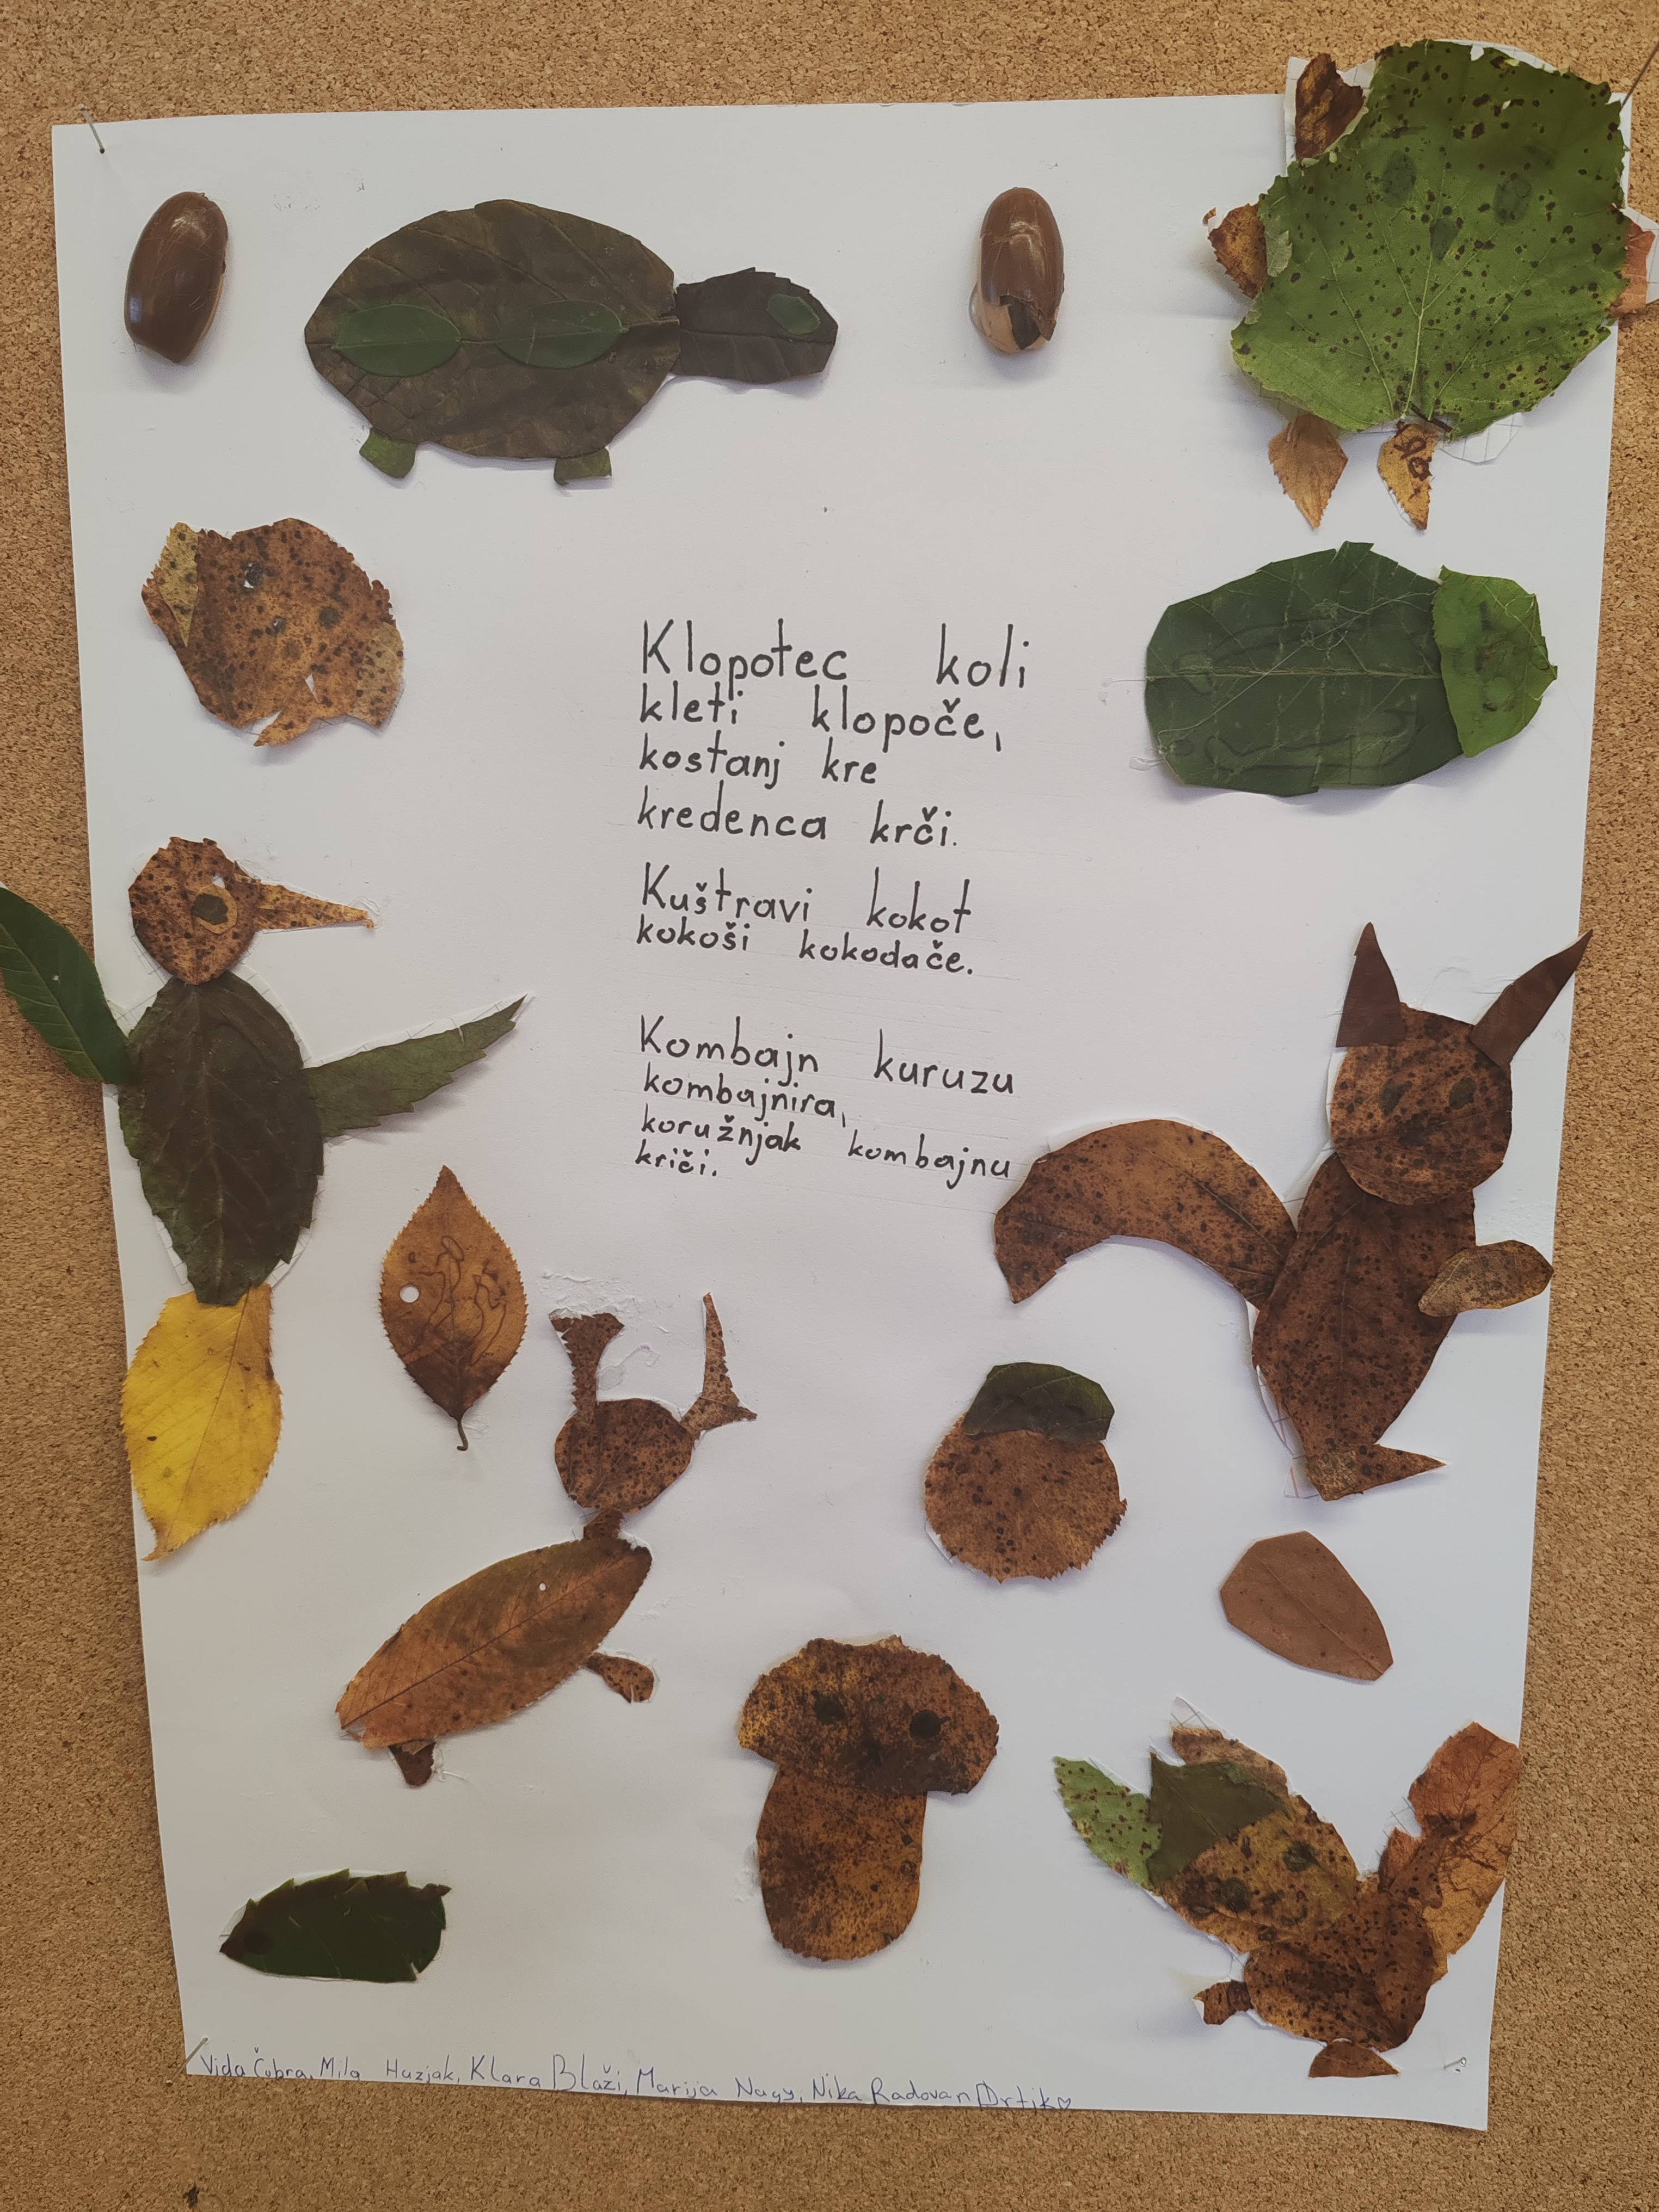 Klopotec koli
kleti klopoče,
kostanj kre
kredenca krči.
Kuštravi kokot
kokoši kokodače.
Kombajn kuruzu
kombajnira,
koružnjak kombajnu
kriči.
Vida Čubra, Mila Huzjak, Klara Blaži, Marija Nagy, Nika Radovan Drtik